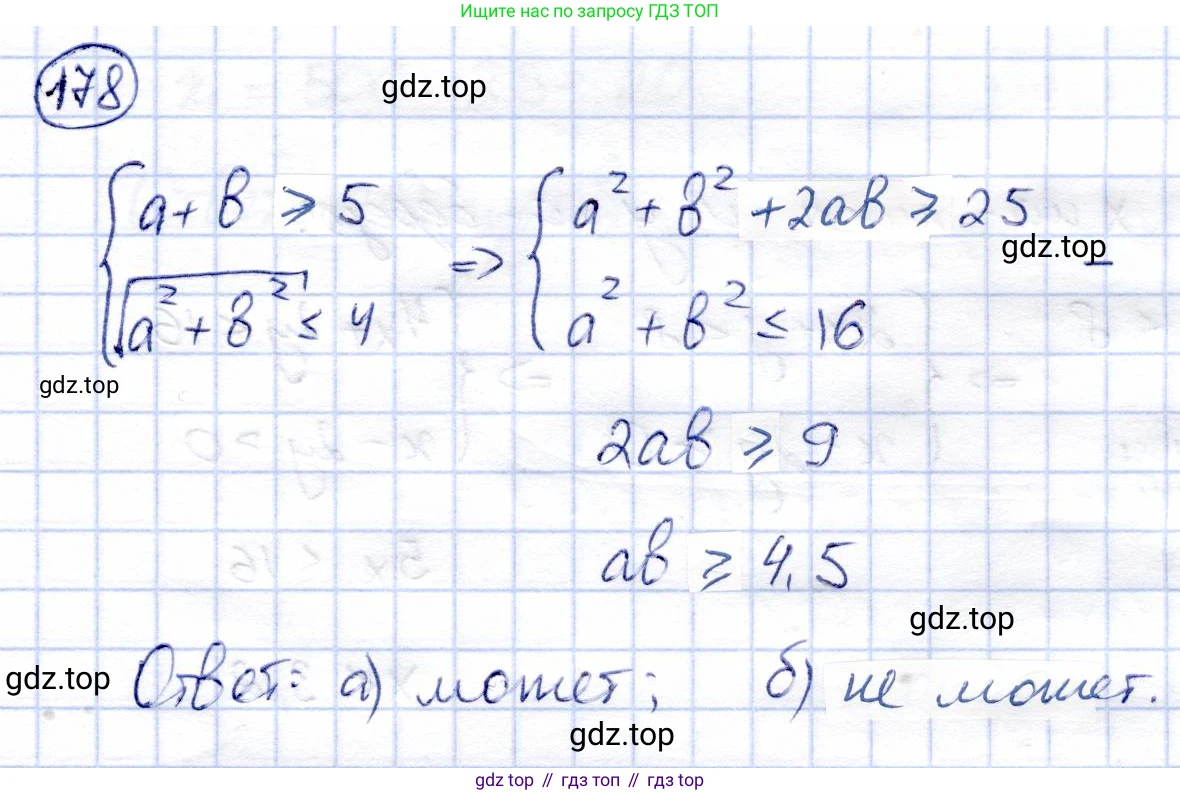 Ищите нас по запросу ГДЗ ТОП
178
gdz.top
{ a + b ⩾ 5 => { a² + b² + 2ab ⩾ 25
gdz.top –
√(a² + b²) ≤ 4 a² + b² ≤ 16
gdz.top
2ab ⩾ 9
ab ⩾ 4,5
gdz.top
gdz.top Ответ: а) может; б) не может.
gdz.top
gdz top // гдз топ // гдз top